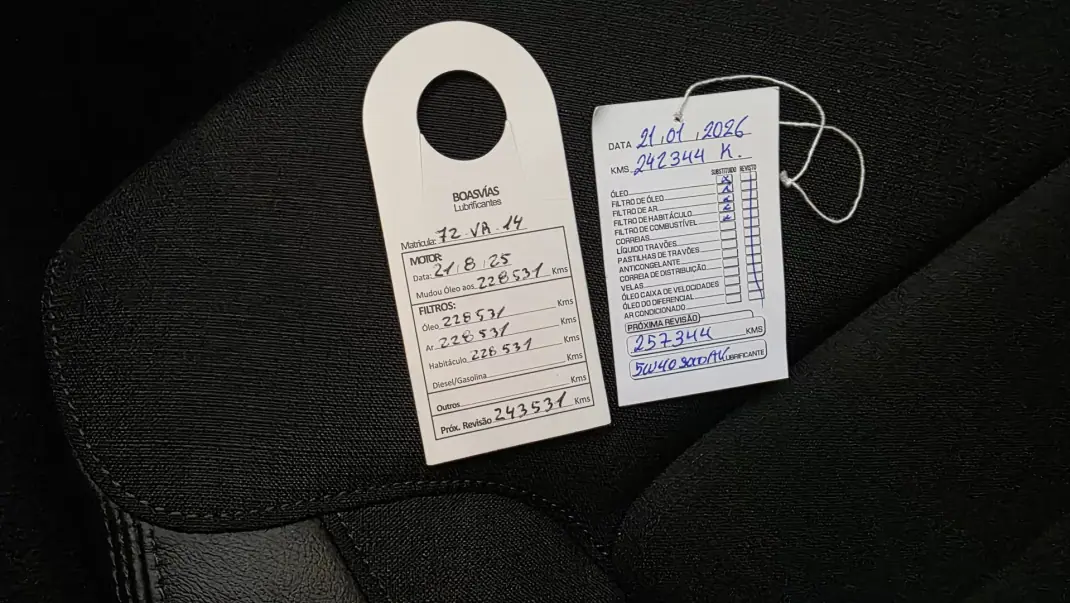 BOASVÍAS
Lubrificantes
Matrícula: 72-VA-14
MOTOR:
Data: 21/8/25
Mudou Óleo aos 228531 Kms
FILTROS:
Óleo 228531 Kms
Ar 228531 Kms
Habitáculo 228531 Kms
Diesel/Gasolina Kms
Outros Kms
Próx. Revisão 243531 Kms
DATA 21/01/2026
KMS 242344 K.
SUBSTITUIDO REVISTO
ÓLEO X
FILTRO DE ÓLEO X
FILTRO DE AR X
FILTRO DE HABITÁCULO X
FILTRO DE COMBUSTÍVEL X
CORREIAS
LÍQUIDO TRAVÕES
PASTILHAS DE TRAVÕES
ANTICONGELANTE
CORREIA DE DISTRIBUIÇÃO
VELAS
ÓLEO CAIXA DE VELOCIDADES
ÓLEO DO DIFERENCIAL
AR CONDICIONADO
PRÓXIMA REVISÃO
257344 KMS
5W40 LUBRIFICANTE